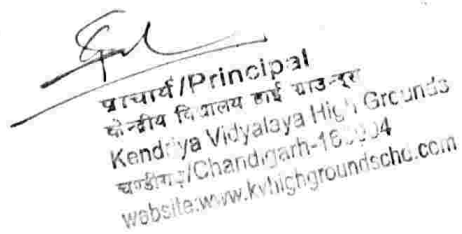 प्राचार्य/Principal
केन्द्रीय विद्यालय हाई ग्राउन्ड्स
Kendriya Vidyalaya High Grounds
चण्डीगढ़/Chandigarh-160004
website:www.kvhighgroundschd.com